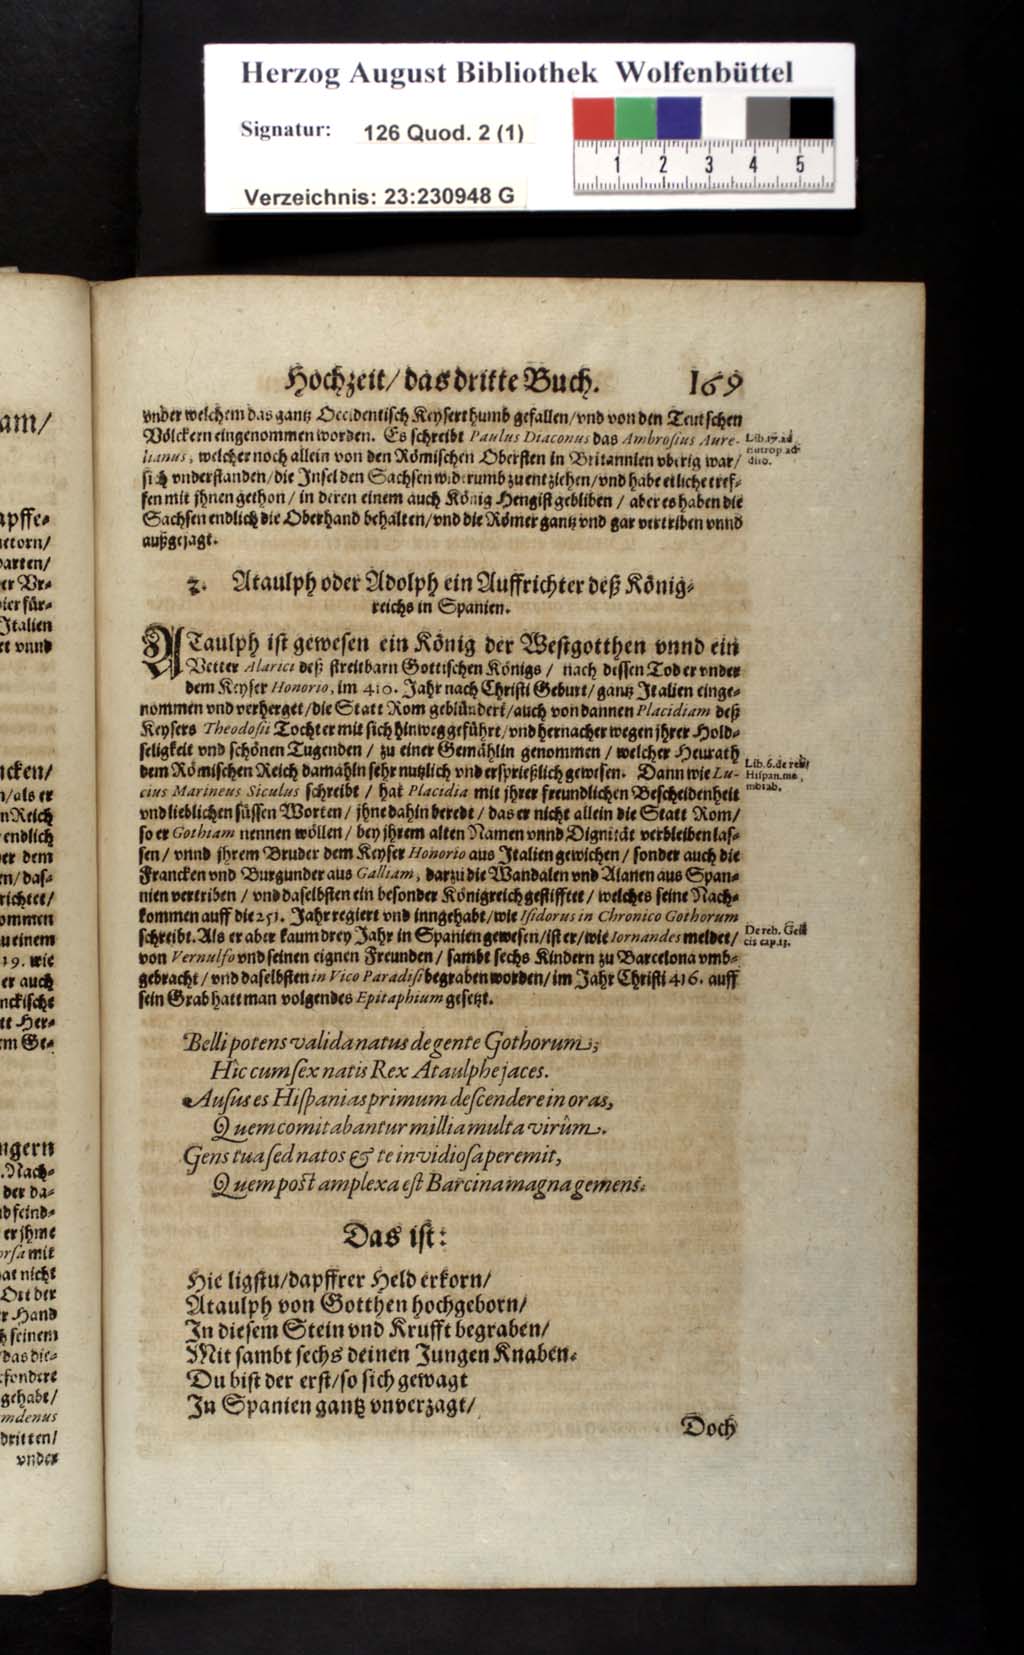 Herzog August Bibliothek Wolfenbüttel
Signatur: 126 Quod. 2 (1)
1 2 3 4 5
Verzeichnis: 23:230948 G
Hochzeit/ das dritte Buch. 169
vnder welchem das gantz Occidentisch Keyserthumb gefallen/vnd von den Teutschen
Völckern eingenommen worden. Es schreibt Paulus Diaconus das Ambrosius Aure-
lianus, welcher noch allein von den Römischen Obersten in Britannien vberig war/
sich vnderstanden/die Insel den Sachsen widerumb zu entziehen/vnd habe etliche tref-
fen mit jhnen gethon/ in deren einem auch König Hengist gebliben/ aber es haben die
Sachsen endlich die Oberhand behalten/vnd die Römer gantz vnd gar vertriben vnnd
außgejagt.
Lib. 17. ad
eutrop. ad-
dito.
2. Ataulph oder Adolph ein Auffrichter deß König-
reichs in Spanien.
ATaulph ist gewesen ein König der Westgotthen vnnd ein
Vetter Alarici deß streitbarn Gottischen Königs/ nach dessen Tod er vnder
dem Keyser Honorio, im 410. Jahr nach Christi Geburt/ gantz Italien einge-
nommen vnd verherget/die Statt Rom geblündert/auch von dannen Placidiam deß
Keysers Theodosii Tochter mit sich hinweg geführt/vnd hernacher wegen jhrer Hold-
seligkeit vnd schönen Tugenden/ zu einer Gemählin genommen/ welcher Heurath
dem Römischen Reich damahln sehr nutzlich vnd ersprießlich gewesen. Dann wie Lu-
cius Marineus Siculus schreibt/ hat Placidia mit jhrer freundlichen Bescheidenheit
vnd lieblichen süssen Worten/ jhne dahin beredt/ das er nicht allein die Statt Rom/
so er Gothiam nennen wöllen/ bey jhrem alten Namen vnnd Dignität verbleiben las-
sen/ vnnd jhrem Bruder dem Keyser Honorio aus Italien gewichen/ sonder auch die
Francken vnd Burgunder aus Galliam, darzu die Wandalen vnd Alanen aus Span-
nien vertriben/ vnd daselbsten ein besonder Königreich gestifftet/ welches seine Nach-
kommen auff die 251. Jahr regiert vnd inngehabt/wie Isidorus in Chronico Gothorum
schreibt. Als er aber kaum drey Jahr in Spanien gewesen/ist er/wie Iornandes meldet/
von Vernulfo vnd seinen eignen Freunden/ sambt sechs Kindern zu Barcelona vmb-
gebracht/ vnd daselbsten in Vico Paradisi begraben worden/ im Jahr Christi 416. auff
sein Grab hatt man volgendes Epitaphium gesetzt.
Lib. 6. de reb.
Hispan. me-
morab.
De reb. Geti
cis cap. 13.
Belli potens valida natus de gente Gothorum,
Hîc cum sex natis Rex Ataulphe jaces.
Ausus es Hispanias primum descendere in oras,
Quem comitabantur millia multa virûm.
Gens tua sed natos & te invidiosa peremit,
Quem post amplexa est Barcina magna gemens.
Das ist:
Hie ligstu/dapffrer Held erkorn/
Ataulph von Gotthen hochgeborn/
In diesem Stein vnd Krufft begraben/
Mit sambt sechs deinen Jungen Knaben.
Du bist der erst/so sich gewagt
In Spanien gantz vnverzagt/
Doch